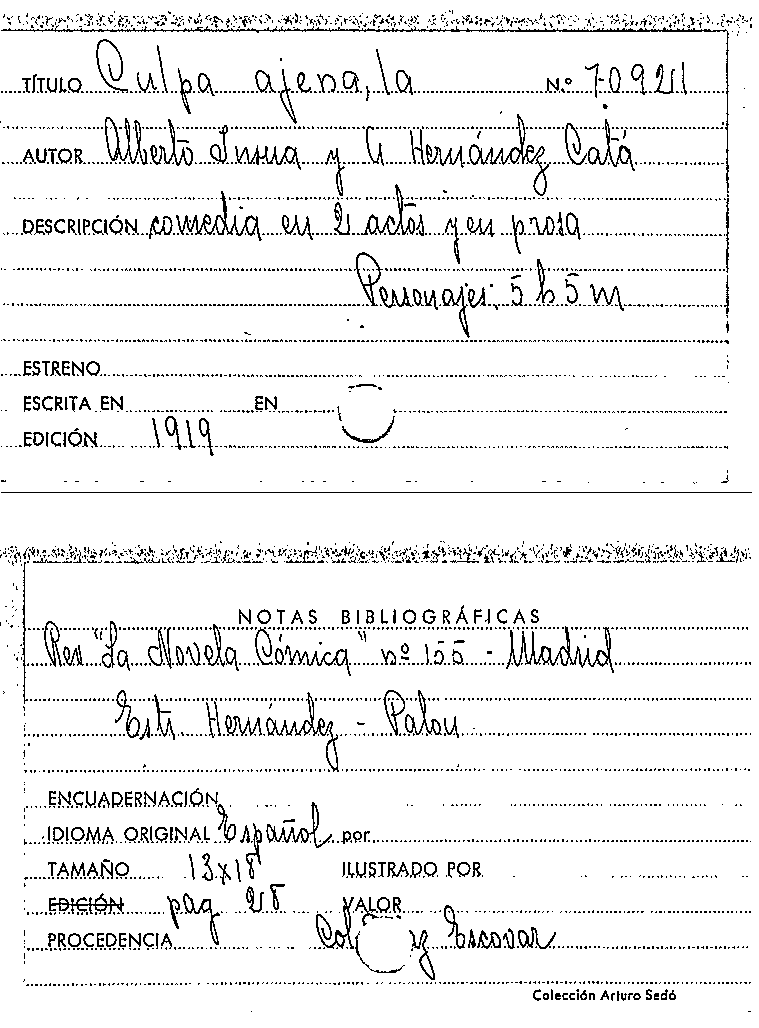 TÍTULO Culpa ajena, la N.º 70921
AUTOR Alberto Insua y A Hernández Catá
DESCRIPCIÓN comedia en 2 actos y en prosa
Personajes: 5 h 5 m
ESTRENO
ESCRITA EN EN
EDICIÓN 1919
NOTAS BIBLIOGRÁFICAS
Rev "La Novela Cómica" nº 155 - Madrid
Estr. Hernández - Palou
ENCUADERNACIÓN
IDIOMA ORIGINAL Español por
TAMAÑO 13x18 ILUSTRADO POR
EDICIÓN pag 28 VALOR
PROCEDENCIA Escovar
Colección Arturo Sedó